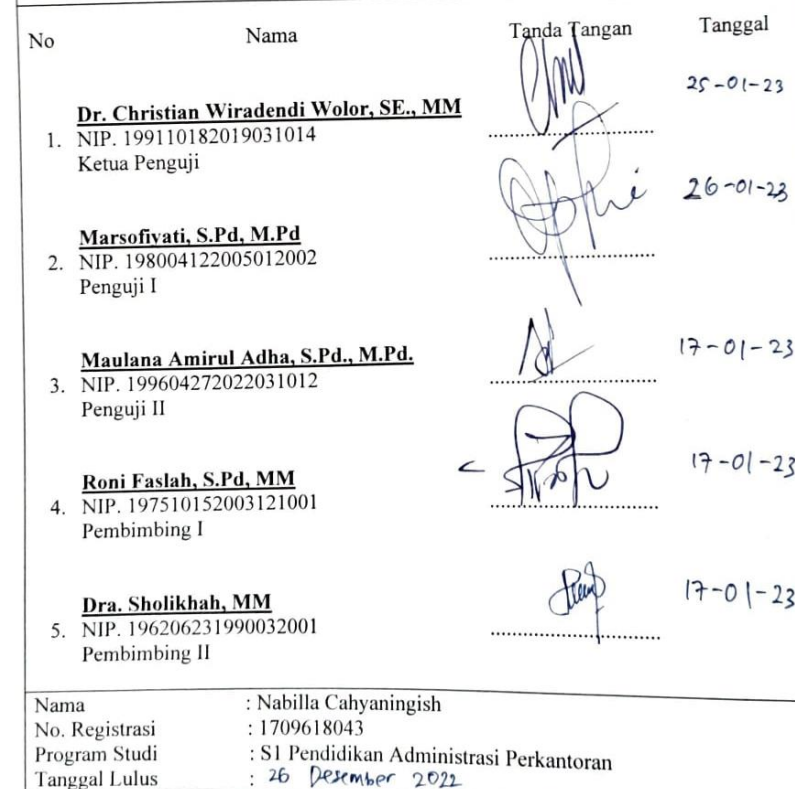 No Nama Tanda Tangan Tanggal
Dr. Christian Wiradendi Wolor, SE., MM 25-01-23
1. NIP. 199110182019031014
Ketua Penguji
26-01-23
Marsofiyati, S.Pd, M.Pd
2. NIP. 198004122005012002
Penguji I
Maulana Amirul Adha, S.Pd., M.Pd. 17-01-23
3. NIP. 199604272022031012
Penguji II
Roni Faslah, S.Pd, MM 17-01-23
4. NIP. 197510152003121001
Pembimbing I
Dra. Sholikhah, MM 17-01-23
5. NIP. 196206231990032001
Pembimbing II
Nama : Nabilla Cahyaningish
No. Registrasi : 1709618043
Program Studi : S1 Pendidikan Administrasi Perkantoran
Tanggal Lulus : 26 Desember 2022